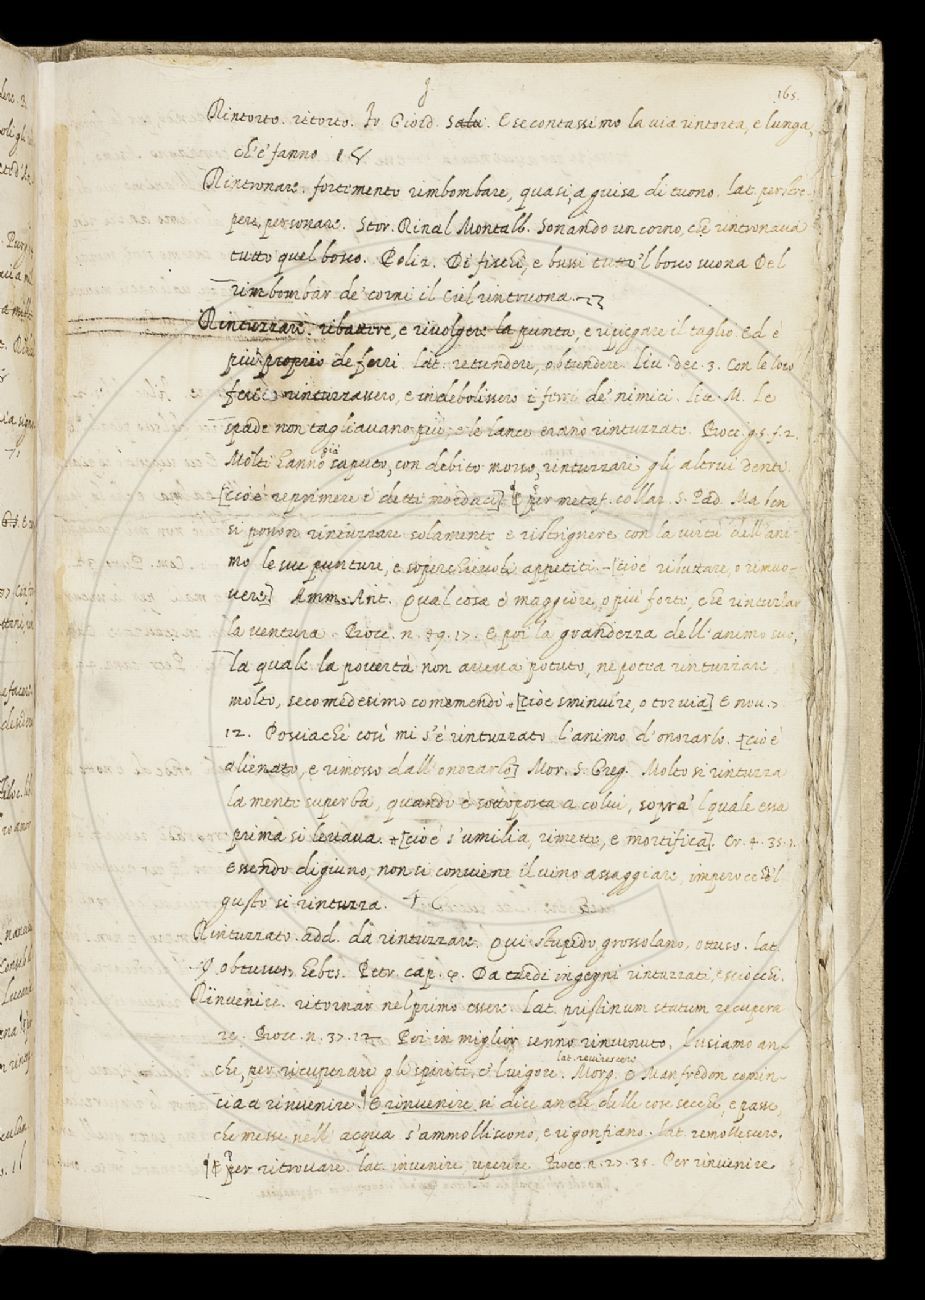 165.
Rintorto. ritorto. Fr Giord. Salu. E se contassimo la uia rintorta, e lunga,
ch'e' fanno
Rintronare. fortemente rimbombare, quasi, a guisa di tuono. lat. perstre-
pere, personare. Stor. Rinal Montalb. Sonando un corno, che rintronaua
tutto quel bosco. Poliz. Di fischi, e bussi tutto 'l bosco suona Del
rimbombar de' corni il Ciel rintruona.
Rintuzzare. ribattere, e riuolgere la punta, e ripiegare il taglio. Ed è
più proprio de ferri. lat. retundere, obtundere. Liu. dec. 3. Con le loro
rintuzzassero, e indebolissero i ferri de' nimici. M. Le
spade non tagliauano più, e le lance erano rintuzzate. Bocc. g. 5. f. 2.
Molti hanno già saputo, con debito morso, rintuzzare gli altrui denti.
[cioè reprimere i detti mordaci] ¶ per metaf. collaz. S. Pad. Ma ben
si posson rintuzzare solamente e ristrignere con la uirtù dell'ani-
mo le sue punture, e soperchieuoli appetiti. [cioè ributtare, o rimuo-
uere] Amm. Ant. Qual cosa è maggiore, o più forte, che rintuzzar
la uentura. Bocc. n. 49. 17. E poi la grandezza dell'animo suo,
la quale la pouertà non aueua potuto, nè potea rintuzzare
molto, seco medesimo comendò. [cioè sminuire, o tor uia] E nou. 7
12. Posciachè così mi s'è rintuzzato l'animo d'onorarlo. [cioè
alienato, e rimosso dall'onorarlo] Mor. S. Greg. Molto si rintuzza
la mente superba, quando è sottoposta a colui, sopra 'l quale essa
prima si leuaua. [cioè s'umilia, rimette, e mortifica]. Cr. 4. 35. 1.
Essendo digiuno, non si conuiene il uino assaggiare, imperocch'e'l
gusto si rintuzza.
Rintuzzato. add. da rintuzzare. Qui stupido, grossolano, ottuso. lat.
obtusus, hebes. Petr. cap. 4. Da tardi ingegni rintuzzati, e sciocchi.
Rinuenire. ritornar nel primo essere. lat. pristinum statum recupera
re. Bocc. n. 37. 12. Poi in miglior senno rinuenuto. Lusiamo an-
lat. reuirescere
che, per ricuperare gli spiriti, e 'l uigore. Morg. E Manfredon comin-
cia a rinuenire. ¶ E rinuenire si dice anche delle cose secche, e passe,
che messe nell' acqua s'ammolliscono, e rigonfiano. lat. remollescere.
¶ E per ritrouare. lat. inuenire, reperire. Bocc. n. 27. 35. Per rinuenire